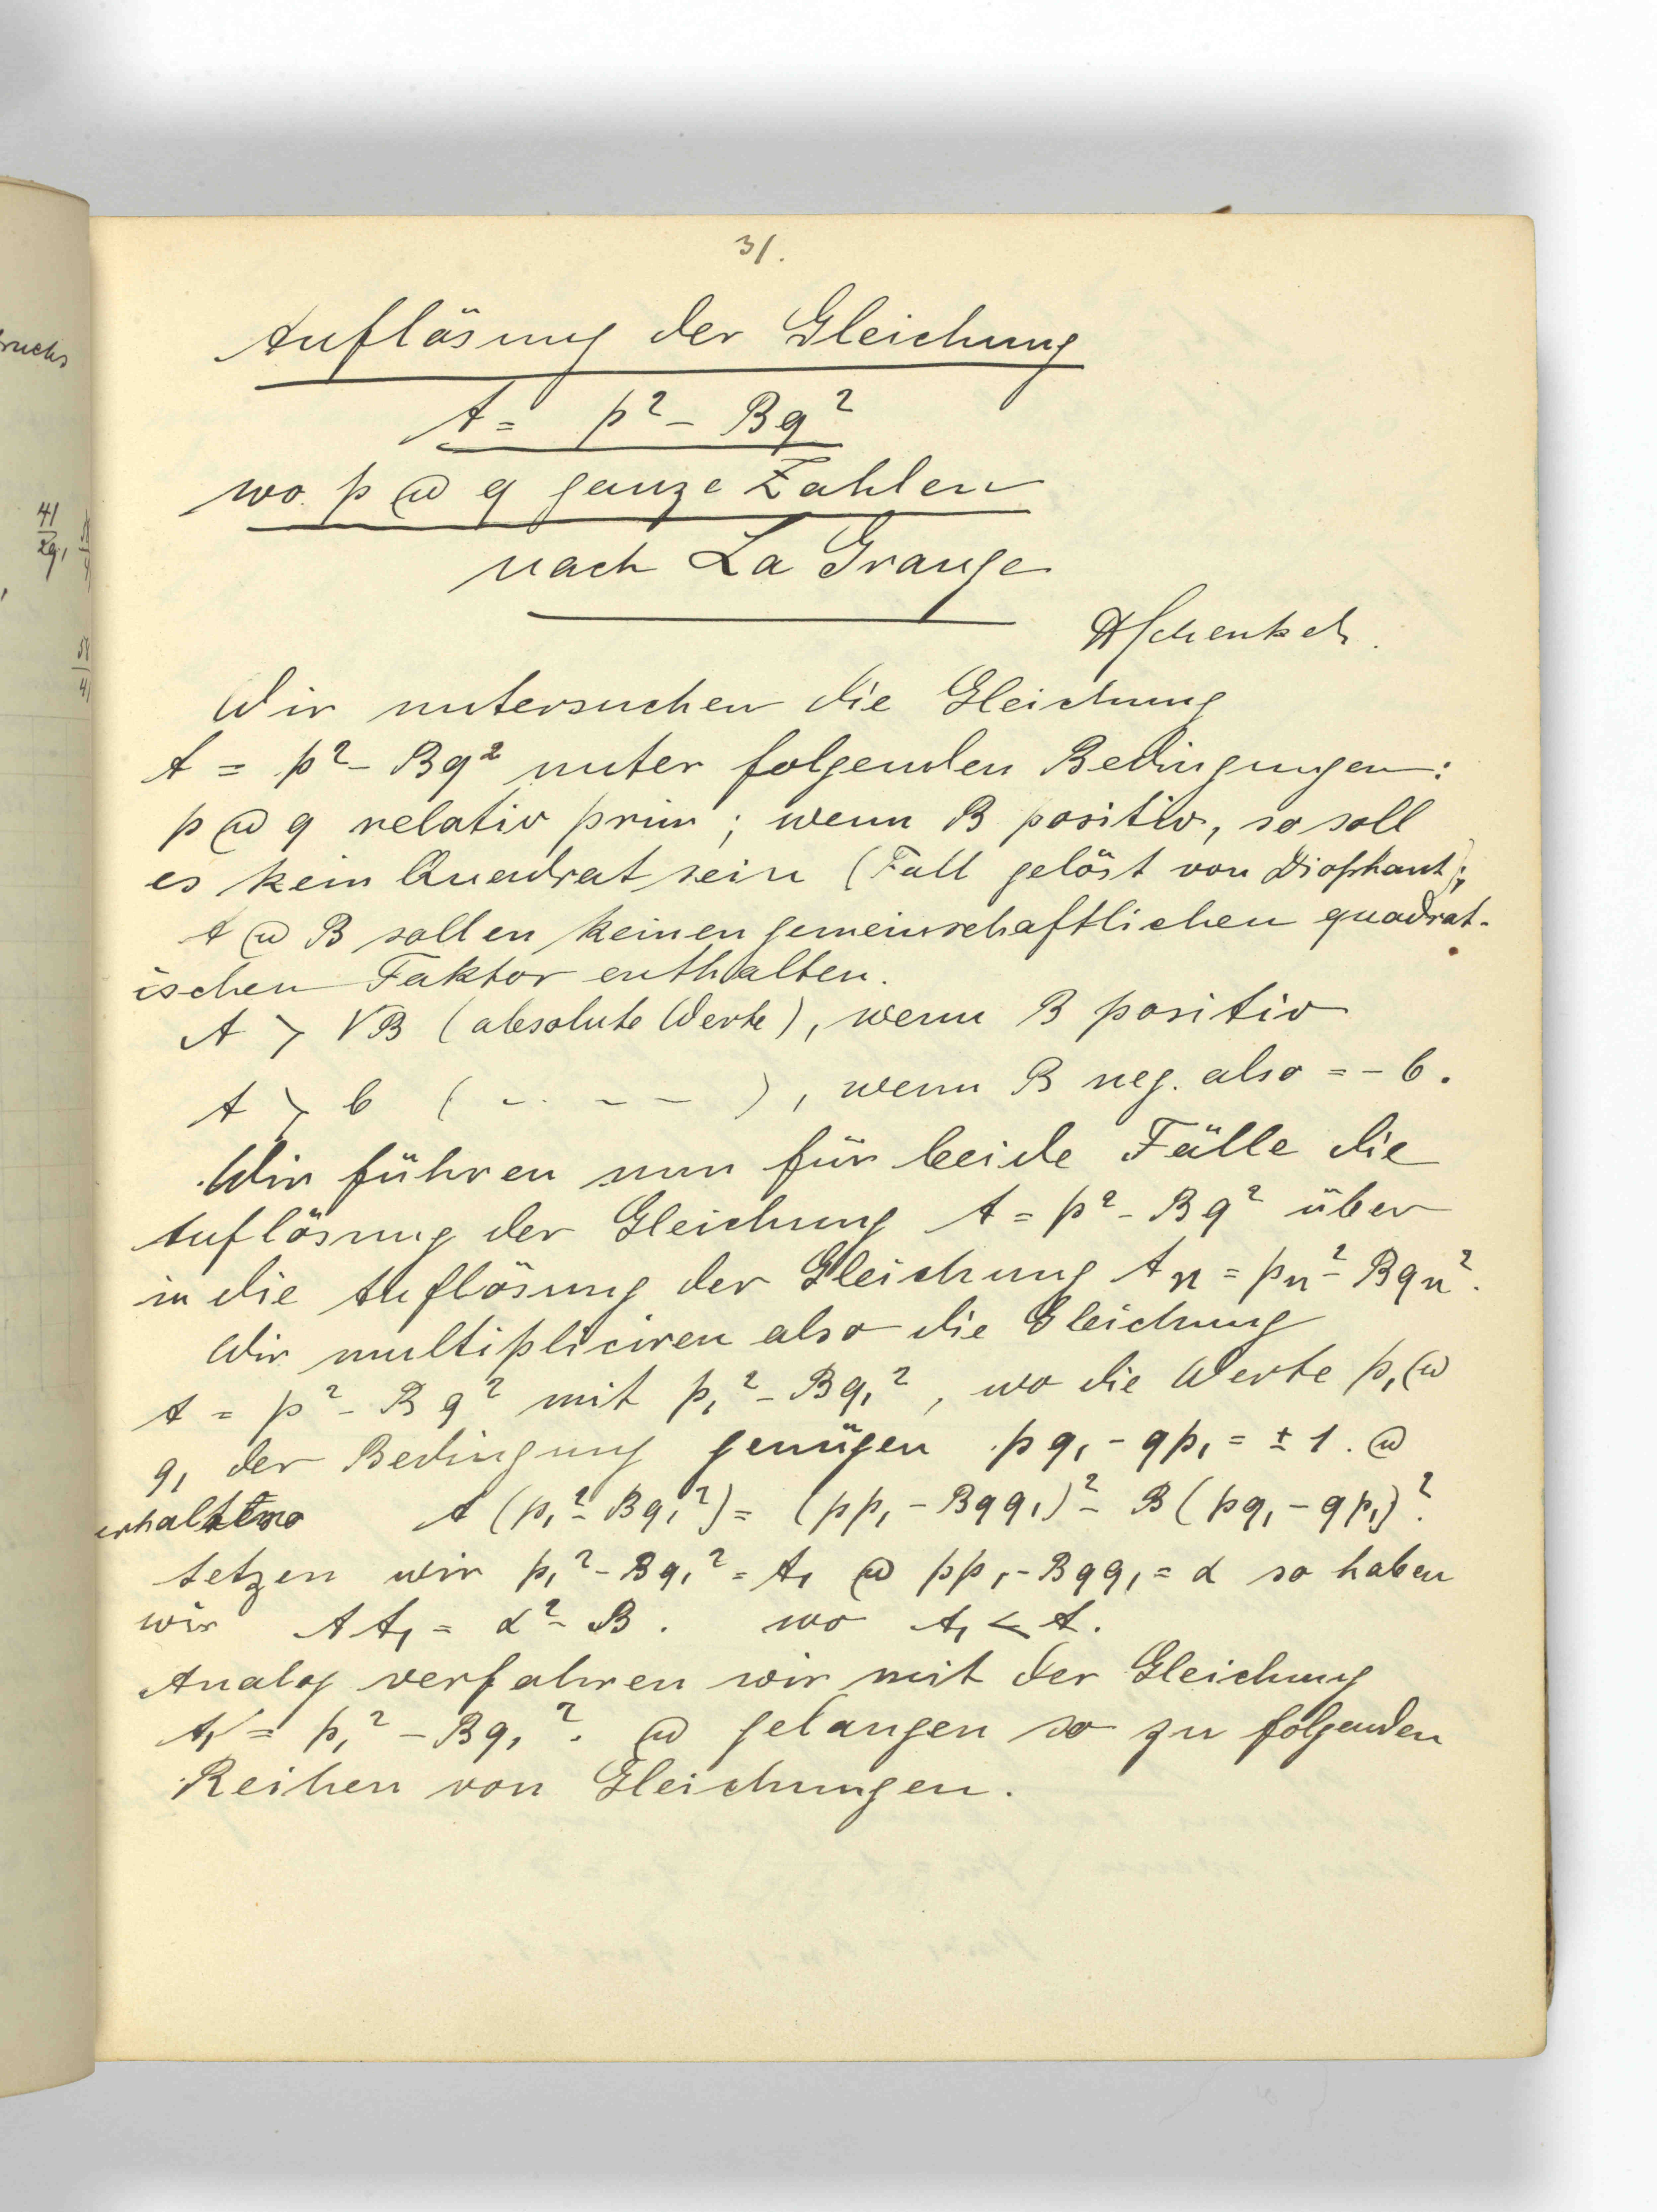 31.
Auflösung der Gleichung
A = p² – Bq²
wo p @ q ganze Zahlen
nach La Grange
Wir untersuchen die Gleichung
A = p² – Bq² unter folgenden Bedingungen:
p @ q relativ prim; wenn B positiv, so soll
es kein Quadrat sein (Fall gelöst von Diophant);
A @ B sollen keinen gemeinschaftlichen quadrat-
ischen Faktor enthalten.
A > √B (absolute Werte), wenn B positiv
A > b ( – – – ), wenn B neg. also = – b.
Wir führen nun für beide Fälle die
Auflösung der Gleichung A = p² – Bq² über
in die Auflösung der Gleichung Aₙ = pₙ² – Bqₙ².
Wir multipliciren also die Gleichung
A = p² – Bq² mit p₁² – Bq₁², wo die Werte p₁ @
q₁ der Bedingung genügen pq₁ – qp₁ = ± 1. @
A (p₁² – Bq₁²) = (pp₁ – Bqq₁)² – B (pq₁ – qp₁)².
setzen wir p₁² – Bq₁² = A₁ @ pp₁ – Bqq₁ = α so haben
wir A A₁ = α² – B. wo A₁ < A.
Analog verfahren wir mit der Gleichung
A₁ = p₁² – Bq₁². @ gelangen so zu folgenden
Reihen von Gleichungen.
ruchs
41
58
41